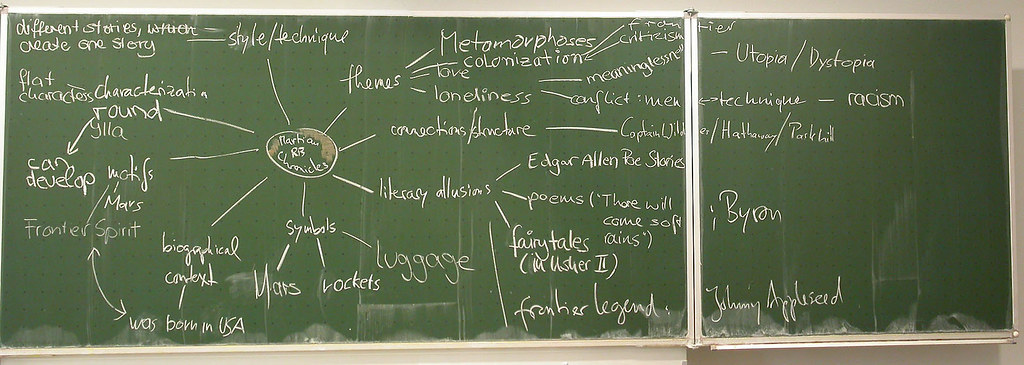 different stories, which
create one story
style/technique
themes
Metamorphoses
colonization
love
loneliness
frontier
criticism
meaningless
Utopia / Dystopia
conflict: men <-> technique — racism
flat
characters
Characterization
round
Ylla
can
develop
Martian
RB
Chronicles
connections/structure
Captain Wilder / Hathaway / Parkhill
motifs
Mars
Frontier Spirit
literary allusions
Edgar Allen Poe Stories
poems ('There will
come soft
rains')
; Byron
fairytales
(in Usher II)
frontier legend:
Johnny Appleseed
symbols
Mars
rockets
luggage
biographical
context
was born in USA